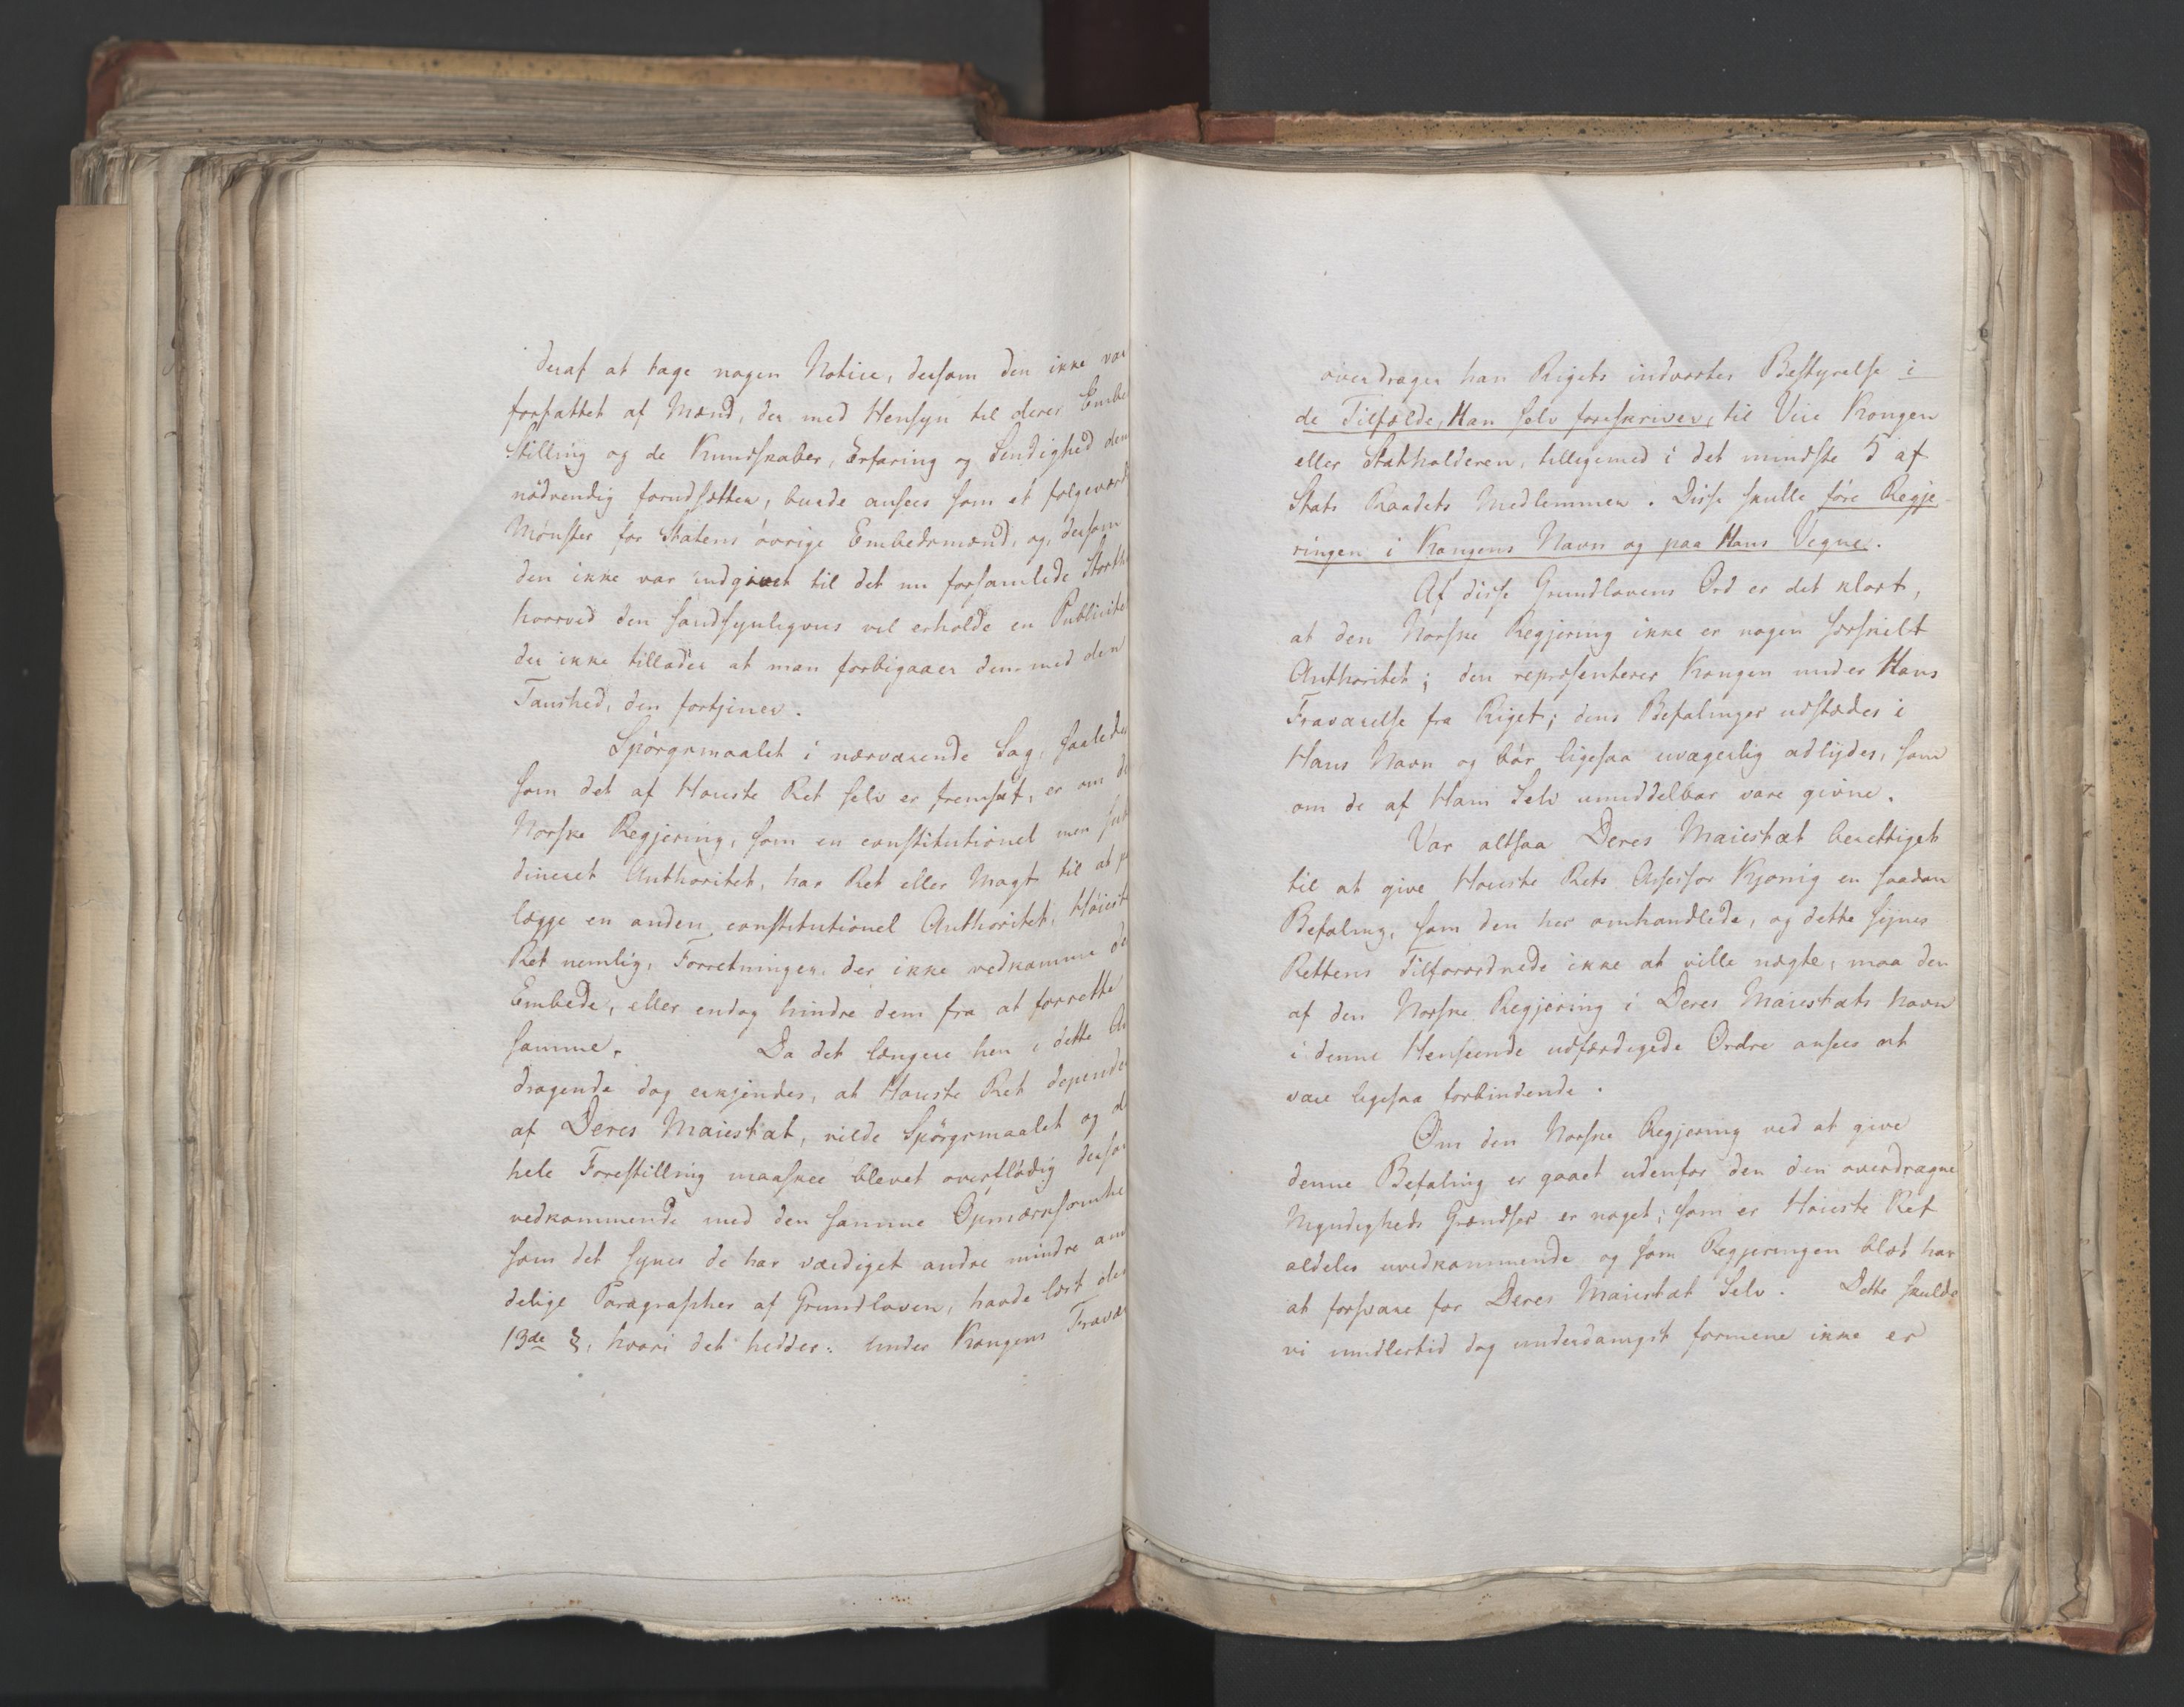 deraf at tage nogen Notice, dersom den ikke var
forfattet af Mænd, der med Hensyn til deres Embe
Stilling og de Kundskaber, Erfaring og Sindighed den
nödvendig forudsætter, burde ansees som et følgeværd
Mönster for Statens övrige Embedsmænd, og, dersom
den ikke var indgivet til det nu forsamlede Storth
hvorved den sandsynligvis vil erholde en Publicite
der ikke tillader at man forbigaaer den med den
Taushed, den fortjener.
Spörgsmaalet i nærværende Sag, saaledes
som det af Høieste Ret selv er fremsat, er om de
Norske Regjering, som en constitutionel men sub
dineret Authoritet, har Ret eller Magt til at p
lægge en anden constitutionel Authoritet, Høieste
Ret nemlig, Forretninger, der ikke vedkomme de
Embede, eller endog hindre dem fra at forrette
samme. Da det længere hen i dette An
dragende dog erkjendes, at Høieste Ret depende
af Deres Maiestæt, vilde Spörgsmaalet og d
hele Forestilling maaskee blevet overflödig dersom
vedkommende med den samme Opmærksomhe
som det synes de har værdiget andre mindre am
delige Paragrapher af Grundloven, havde læst de
13de §, hvori det hedder: Under Kongens Fravæ
overdrager han Rigets indvortes Bestyrelse i
de Tilfælde, Han selv foreskriver, til Vice Kongen
eller Statholderen, tilligemed i det mindste 5 af
Stats Raadets Medlemmer. Disse skulle före Regje-
ringen i Kongens Navn og paa Hans Vegne.
Af disse Grundlovens Ord er det klart,
at den Norske Regjering ikke er nogen særskilt
Authoritet; den repræsenterer Kongen under Hans
Fraværelse fra Riget; dens Befalinger udstædes i
Hans Navn og bör ligesaa uvægerlig adlydes, som
om de af Ham Selv umiddelbar vare givne.
Var altsaa Deres Maiestæt berettiget
til at give Høieste Rets Assessor Kjønig en saadan
Befaling, som den her omhandlede, og dette synes
Rettens Tilforordnede ikke at ville nægte, maa den
af den Norske Regjering i Deres Maiestæts Navn
i denne Henseende udfærdigede Ordre ansees at
være ligesaa forbindende.
Om den Norske Regjering ved at give
denne Befaling er gaaet udenfor den den overdragne
Myndigheds Grændser er noget, som er Høieste Ret
aldeles uvedkommende og som Regjeringen blot har
at forsvare for Deres Maiestæt Selv. Dette skulde
vi imidlertid dog underdanigst formene ikke er